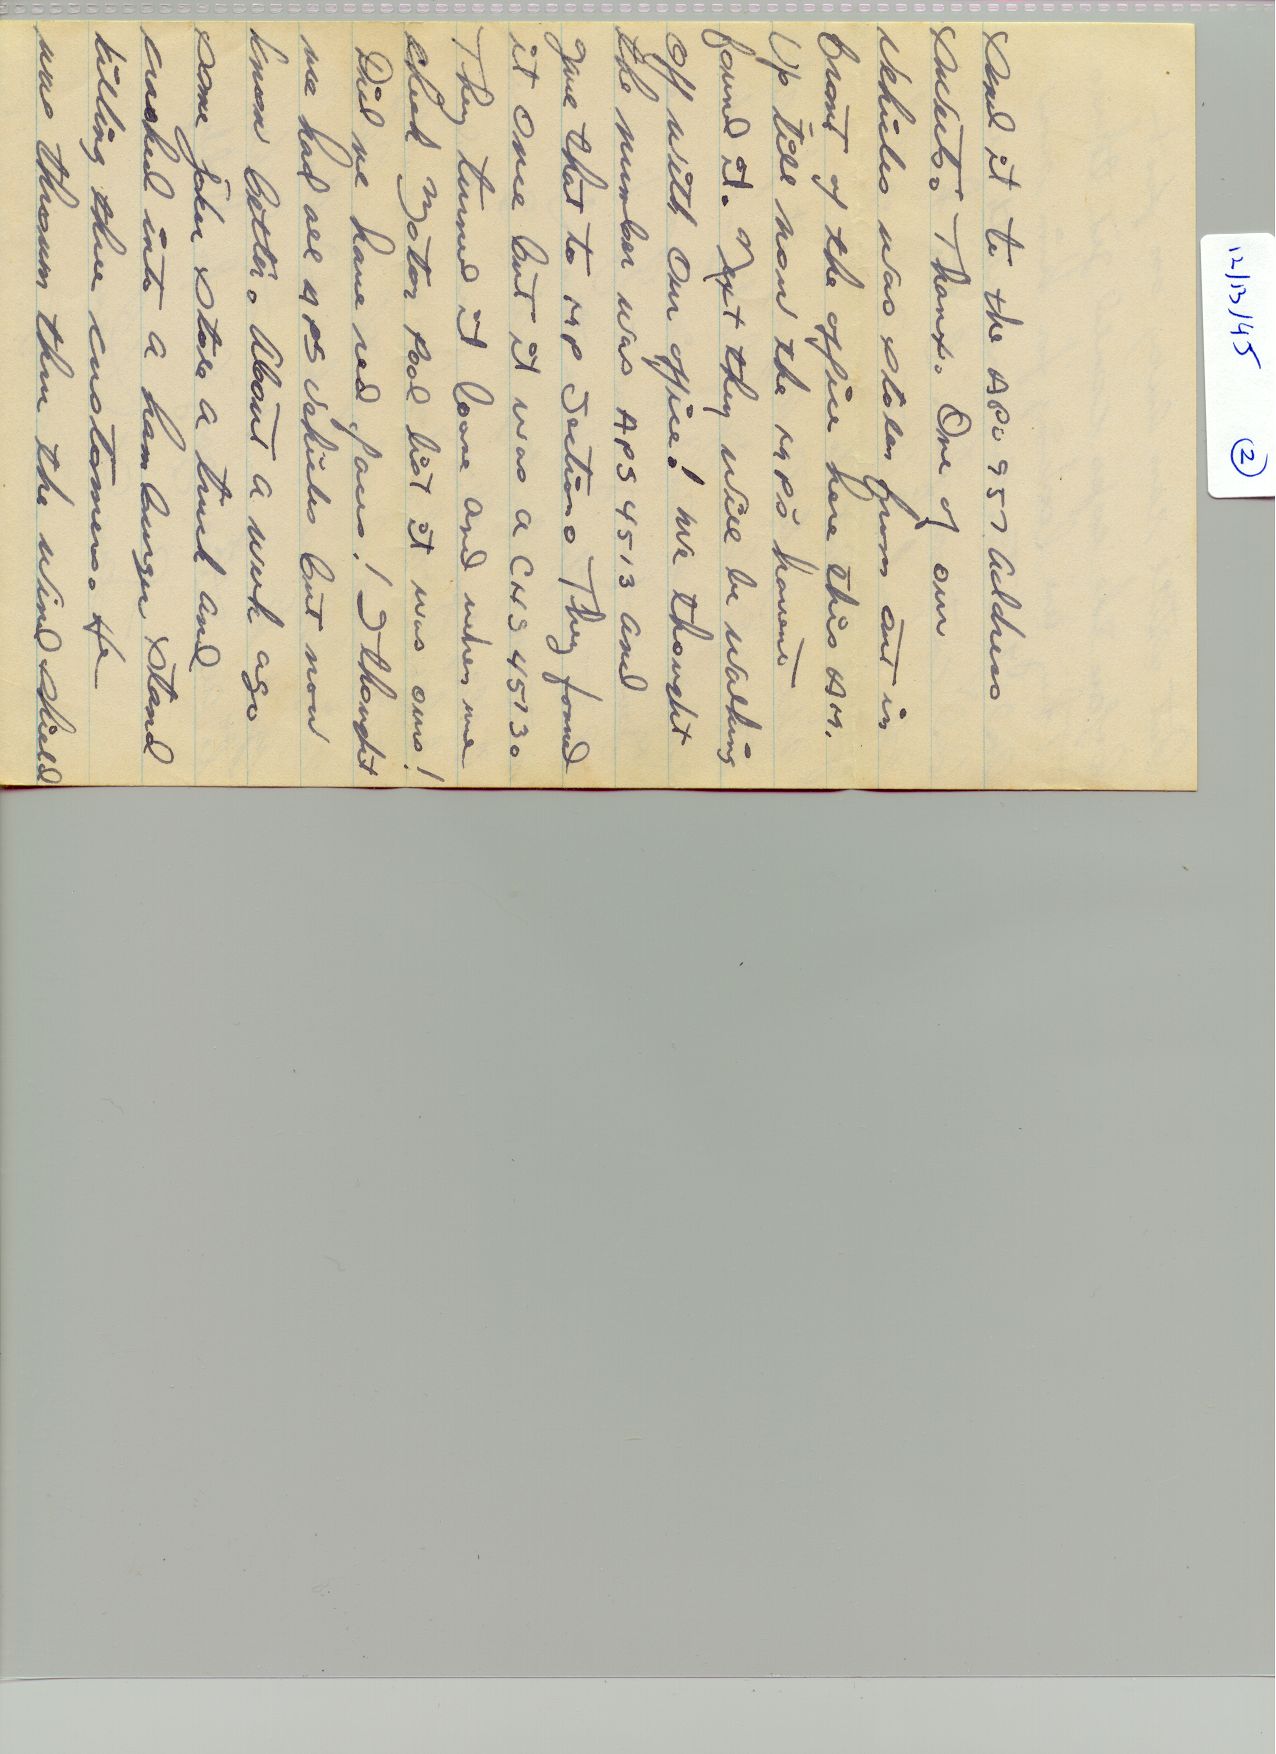 12/13/45 ②
send it to the APO 957 address
Sweets. Thanx. One of our
vehicles was stolen from out in
front of the office here this AM.
Up till now the MPs havent
found it. Next they will be walking
off with our office! We thought
the number was APS 4513 and
gave that to MP Section. They found
it once but it was a CHS 4513.
They turned it loose and when we
check Motor Pool list it was ours!
Did we have red faces! I thought
we had all APS vehicles but now
know better. About a week ago
some joker stole a truck and
crashed into a hamburger stand
killing three customers. He
was thrown thru the wind shield